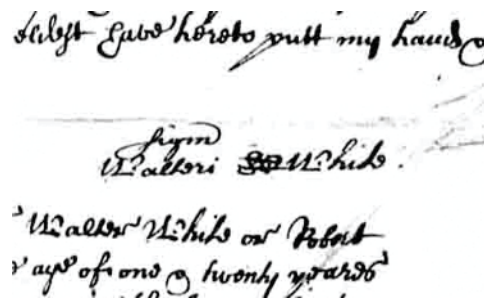 have hereto putt my hand &
Signu
Walteri White.
Walter White or Robert
age of one & twenty yeares